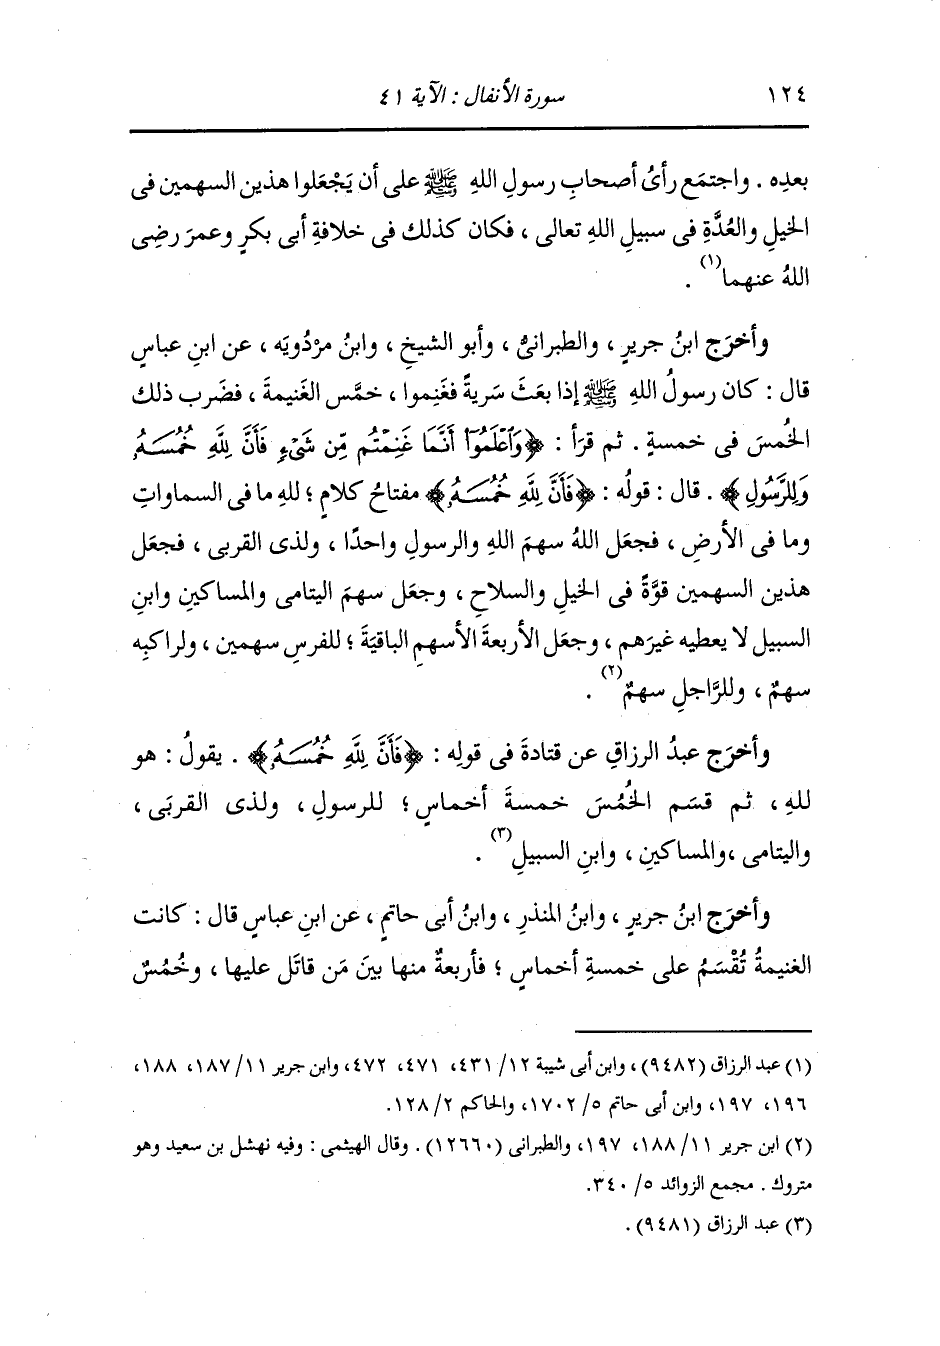 ١٢٤ سورة الأنفال : الآية ٤١
بعدِه . واجتمَع رأىُ أصحابِ رسولِ اللهِ ﷺ على أن يَجْعَلوا هذين السهمين فى
الخيلِ والعُدَّةِ فى سبيلِ اللهِ تعالى ، فكان كذلك فى خلافةِ أبى بكرٍ وعمرَ رضِى
اللهُ عنهما(١) .
وأخرَج ابنُ جريرٍ ، والطبرانىُّ ، وأبو الشيخِ ، وابنُ مرْدُويَه ، عن ابنِ عباسٍ
قال : كان رسولُ اللهِ ﷺ إذا بعَثَ سَريةً فغَنِموا ، خمَّس الغَنيمةَ ، فضَرب ذلك
الخُمسَ فى خمسةٍ . ثم قرَأ : ﴿وَاعْلَمُوٓا أَنَّمَا غَنِمْتُم مِّن شَىْءٍ فَأَنَّ لِلَّهِ خُمُسَهُۥ
وَلِلرَّسُولِ﴾ . قال : قولُه : ﴿فَأَنَّ لِلَّهِ خُمُسَهُۥ﴾ مفتاحُ كلامٍ ؛ للهِ ما فى السماواتِ
وما فى الأرضِ ، فجعَل اللهُ سهمَ اللهِ والرسولِ واحدًا ، ولذى القربى ، فجعَل
هذين السهمين قوَّةً فى الخيلِ والسلاحِ ، وجعَل سهمَ اليتامى والمساكينِ وابنِ
السبيلِ لا يعطيه غيرَهم ، وجعَل الأربعةَ الأسهمِ الباقيَةَ ؛ للفرسِ سهمين ، ولراكبِه
سهمٌ ، وللرَّاجلِ سهمٌ(٢) .
وأخرَج عبدُ الرزاقِ عن قتادةَ فى قولِه : ﴿فَأَنَّ لِلَّهِ خُمُسَهُۥ﴾ . يقولُ : هو
للهِ ، ثم قسَم الخُمُسَ خمسةَ أخماسٍ ؛ للرسولِ ، ولذى القربَى ،
واليتامى ،والمساكينِ ، وابنِ السبيلِ(٣) .
وأخرَج ابنُ جريرٍ ، وابنُ المنذرِ ، وابنُ أبى حاتمٍ ، عن ابنِ عباسٍ قال : كانت
الغنيمةُ تُقْسَمُ على خمسةِ أخماسٍ ؛ فأربعةٌ منها بينَ مَن قاتَل عليها ، وخُمُسٌ
(١) عبد الرزاق (٩٤٨٢) ، وابن أبى شيبة ١٢/ ٤٣١، ٤٧١، ٤٧٢، وابن جرير ١١/ ١٨٧، ١٨٨،
١٩٦، ١٩٧، وابن أبى حاتم ٥/ ١٧٠٢، والحاكم ٢/ ١٢٨.
(٢) ابن جرير ١١/ ١٨٨، ١٩٧، والطبرانى (١٢٦٦٠) . وقال الهيثمى : وفيه نهشل بن سعيد وهو
متروك . مجمع الزوائد ٥/ ٣٤٠.
(٣) عبد الرزاق (٩٤٨١) .